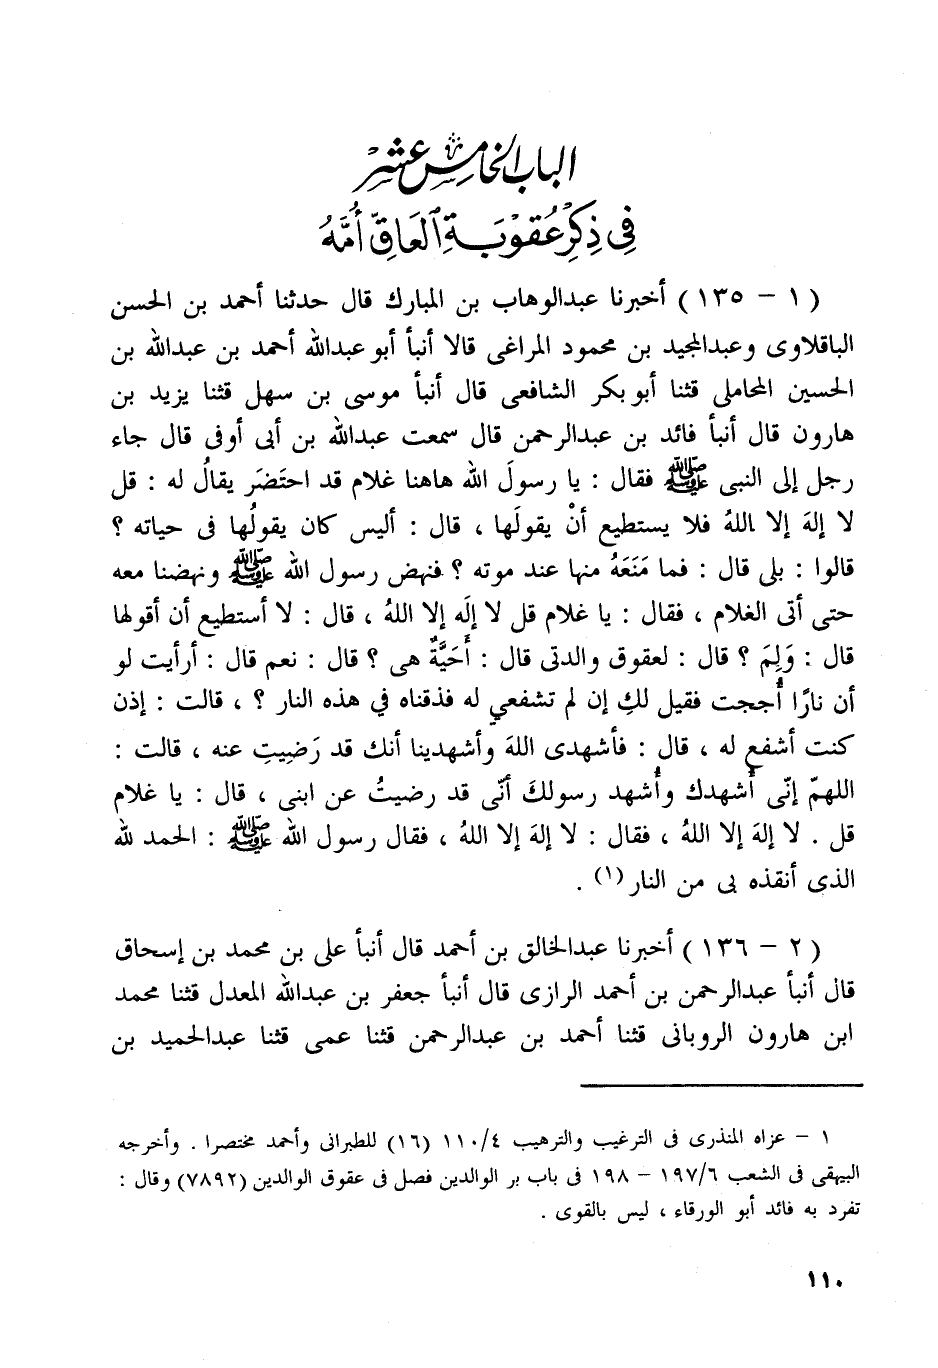 الباب الخامس عشر
فِى ذِكْرِ عُقُوْبَةِ العَاقِّ أُمَّهُ
( ١ – ١٣٥ ) أخبرنا عبدالوهاب بن المبارك قال حدثنا أحمد بن الحسن
الباقلاوى وعبدالمجيد بن محمود المراغى قالا أنبأ أبو عبدالله أحمد بن عبدالله بن
الحسين المحاملى قثنا أبو بكر الشافعى قال أنبأ موسى بن سهل قثنا يزيد بن
هارون قال أنبأ فائد بن عبدالرحمن قال سمعت عبدالله بن أبى أوفى قال جاء
رجل إلى النبى ﷺ فقال : يا رسولَ الله هاهنا غلام قد احتَضَر يقالُ له : قل
لا إلهَ إلا اللهُ فلا يستطيع أنْ يقولَها ، قال : أليس كان يقولُها فى حياته ؟
قالوا : بلى قال : فما مَنَعَهُ منها عند موته ؟ فنهض رسول الله ﷺ ونهضنا معه
حتى أتى الغلام ، فقال : يا غلام قل لا إلَه إلا اللهُ ، قال : لا أستطيع أن أقولها
قال : وَلِمَ ؟ قال : لعقوق والدتى قال : أَحَيَّةٌ هى ؟ قال : نعم قال : أرأيت لو
أن نارًا أُججت فقيل لكِ إن لم تشفعي له فذقناه في هذه النار ؟ ، قالت : إذن
كنت أشفع له ، قال : فأشهدى اللهَ وأشهدينا أنك قد رَضِيتِ عنه ، قالت :
اللهمّ إنّى أُشهدك وأُشهد رسولكَ أنّى قد رضيتُ عن ابنى ، قال : يا غلام
قل . لا إلهَ إلا اللهُ ، فقال : لا إلهَ إلا اللهُ ، فقال رسول الله ﷺ : الحمد لله
الذى أنقذه بى من النار (١) .
( ٢ – ١٣٦ ) أخبرنا عبدالخالق بن أحمد قال أنبأ على بن محمد بن إسحاق
قال أنبأ عبدالرحمن بن أحمد الرازى قال أنبأ جعفر بن عبدالله المعدل قثنا محمد
ابن هارون الروبانى قثنا أحمد بن عبدالرحمن قثنا عمى قثنا عبدالحميد بن
١ – عزاه المنذرى فى الترغيب والترهيب ١١٠/٤ (١٦) للطبرانى وأحمد مختصرا . وأخرجه
البيهقى فى الشعب ١٩٧/٦ – ١٩٨ فى باب بر الوالدين فصل فى عقوق الوالدين (٧٨٩٢) وقال :
تفرد به فائد أبو الورقاء ، ليس بالقوى .
١١٠